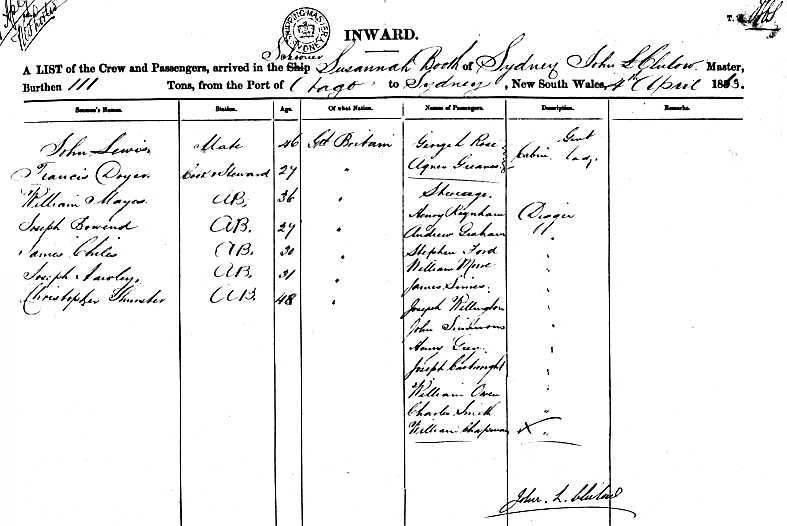 SHIPPING MASTER SYDNEY
INWARD.
A LIST of the Crew and Passengers, arrived in the Ship Susannah Booth of Sydney John L Clulow Master,
Burthen 111 Tons, from the Port of Otago to Sydney, New South Wales, 4th April 1863.
Seaman's Names. Station. Age. Of what Nation. Names of Passengers. Description. Remarks.
John Lewis Mate 46 Gt Britain George L Rose Gent
Cabin
Francis Cook & Steward 27 " Agnes Lady
William Mayos AB. 36 " Steerage
Henry Digger
Joseph AB. 27 " Andrew Graham "
James Chiles AB. 30 " Stephen Ford "
William "
Joseph AB. 31 " James "
Christopher AB. 48 " Joseph Wellington "
John Simmons "
Henry "
Joseph Cartwright "
William Owen "
Charles Smith "
William Chapman X "
John L. Clulow